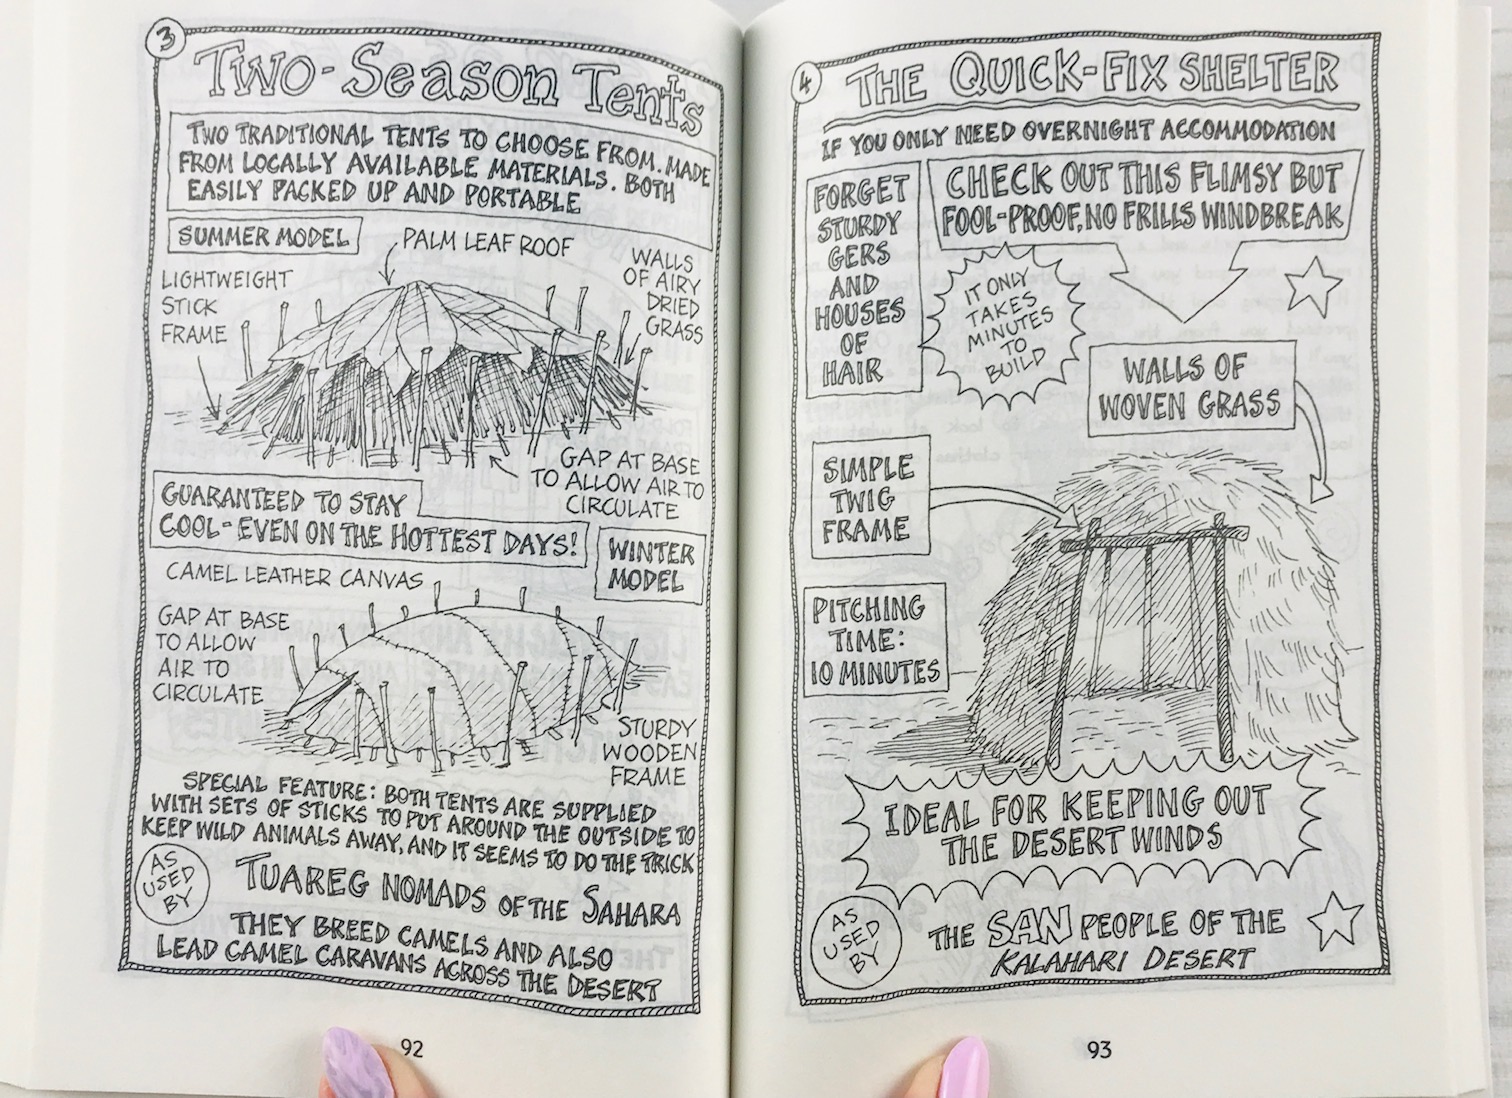 3
TWO-SEASON TENTS
TWO TRADITIONAL TENTS TO CHOOSE FROM. MADE
FROM LOCALLY AVAILABLE MATERIALS. BOTH
EASILY PACKED UP AND PORTABLE
SUMMER MODEL
PALM LEAF ROOF
LIGHTWEIGHT
STICK
FRAME
WALLS
OF AIRY
DRIED
GRASS
GAP AT BASE
TO ALLOW AIR TO
CIRCULATE
GUARANTEED TO STAY
COOL - EVEN ON THE HOTTEST DAYS!
WINTER
MODEL
CAMEL LEATHER CANVAS
GAP AT BASE
TO ALLOW
AIR TO
CIRCULATE
STURDY
WOODEN
FRAME
SPECIAL FEATURE: BOTH TENTS ARE SUPPLIED
WITH SETS OF STICKS TO PUT AROUND THE OUTSIDE TO
KEEP WILD ANIMALS AWAY, AND IT SEEMS TO DO THE TRICK
AS
USED
BY
TUAREG NOMADS OF THE SAHARA
THEY BREED CAMELS AND ALSO
LEAD CAMEL CARAVANS ACROSS THE DESERT
92
4
THE QUICK-FIX SHELTER
IF YOU ONLY NEED OVERNIGHT ACCOMMODATION
FORGET
STURDY
GERS
AND
HOUSES
OF
HAIR
CHECK OUT THIS FLIMSY BUT
FOOL-PROOF, NO FRILLS WINDBREAK
IT ONLY
TAKES
MINUTES
TO
BUILD
WALLS OF
WOVEN GRASS
SIMPLE
TWIG
FRAME
PITCHING
TIME:
10 MINUTES
IDEAL FOR KEEPING OUT
THE DESERT WINDS
AS
USED
BY
THE SAN PEOPLE OF THE
KALAHARI DESERT
93